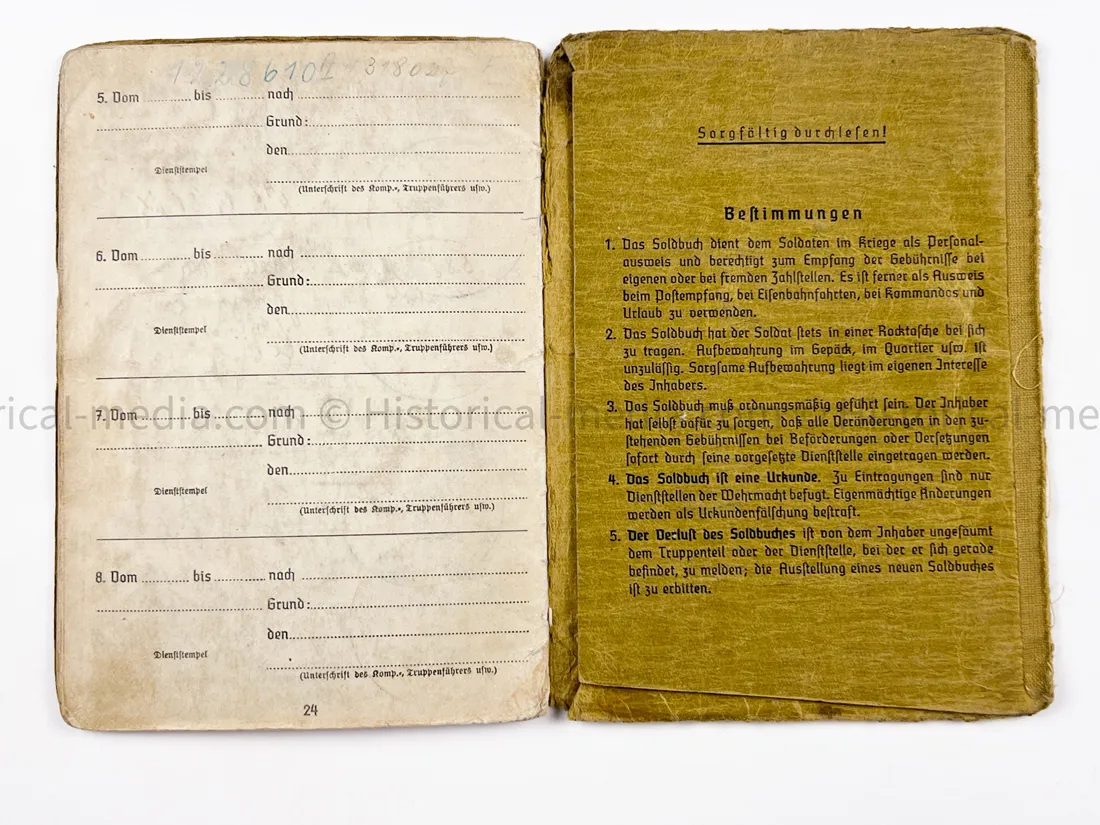 5. Vom ........... bis ........... nach ...........
Grund: ...........
den ...........
Dienststempel
(Unterschrift des Komp.-, Truppenführers usw.)
6. Vom ........... bis ........... nach ...........
Grund: ...........
den ...........
Dienststempel
(Unterschrift des Komp.-, Truppenführers usw.)
7. Vom ........... bis ........... nach ...........
Grund: ...........
den ...........
Dienststempel
(Unterschrift des Komp.-, Truppenführers usw.)
8. Vom ........... bis ........... nach ...........
Grund: ...........
den ...........
Dienststempel
(Unterschrift des Komp.-, Truppenführers usw.)
24
Sorgfältig durchlesen!
Bestimmungen
1. Das Soldbuch dient dem Soldaten im Kriege als Personal-
ausweis und berechtigt zum Empfang der Gebührnisse bei
eigenen oder bei fremden Zahlstellen. Es ist ferner als Ausweis
beim Postempfang, bei Eisenbahnfahrten, bei Kommandos und
Urlaub zu verwenden.
2. Das Soldbuch hat der Soldat stets in einer Rocktasche bei sich
zu tragen. Aufbewahrung im Gepäck, im Quartier usw. ist
unzulässig. Sorgsame Aufbewahrung liegt im eigenen Interesse
des Inhabers.
3. Das Soldbuch muß ordnungsmäßig geführt sein. Der Inhaber
hat selbst dafür zu sorgen, daß alle Veränderungen in den zu-
stehenden Gebührnissen bei Beförderungen oder Versetzungen
sofort durch seine vorgesetzte Dienststelle eingetragen werden.
4. Das Soldbuch ist eine Urkunde. Zu Eintragungen sind nur
Dienststellen der Wehrmacht befugt. Eigenmächtige Änderungen
werden als Urkundenfälschung bestraft.
5. Der Verlust des Soldbuches ist von dem Inhaber ungesäumt
dem Truppenteil oder der Dienststelle, bei der er sich gerade
befindet, zu melden; die Ausstellung eines neuen Soldbuches
ist zu erbitten.
rical-media.com © Historical-me